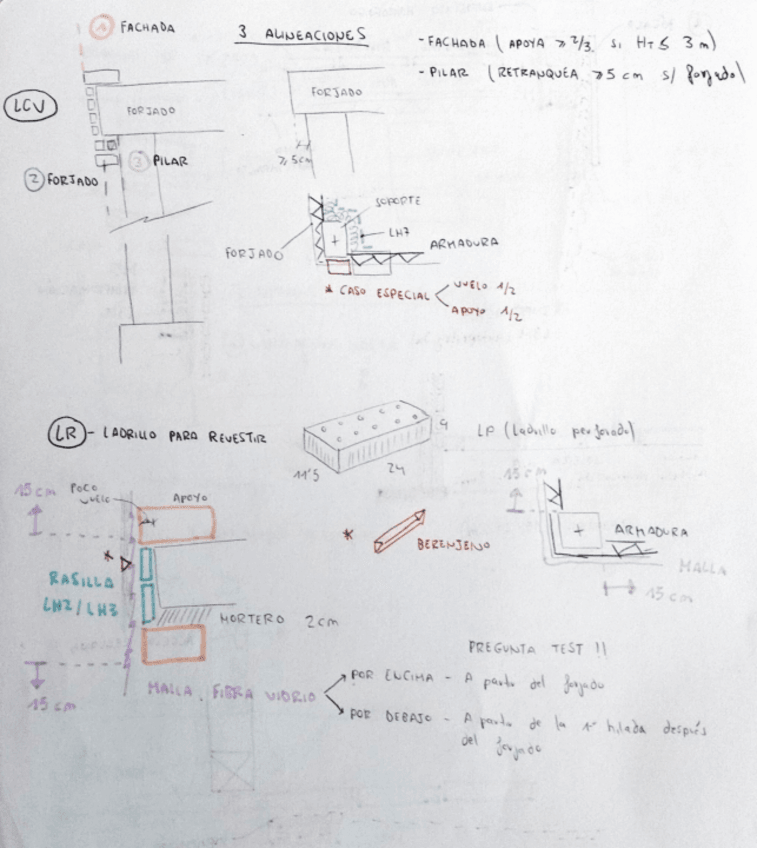 1 FACHADA
3 ALINEACIONES
- FACHADA (APOYA ≥ 2/3 si HT ≤ 3 m)
- PILAR (RETRANQUEA ≥ 5 cm s/ forjado)
LCV
FORJADO
FORJADO
3 PILAR
2 FORJADO
≥ 5 cm
SOPORTE
LH7
FORJADO
ARMADURA
* CASO ESPECIAL
VUELO 1/2
APOYO 1/2
LR - LADRILLO PARA REVESTIR
9
11'5
24
LP (Ladrillo perforado)
15 cm
POCO
vuelo
APOYO
15 cm
*
RASILLA
LH2/LH3
MORTERO 2 cm
* BERENJENO
+
ARMADURA
MALLA
15 cm
15 cm
MALLA FIBRA VIDRIO
PREGUNTA TEST !!
POR ENCIMA - A partir del forjado
POR DEBAJO - A partir de la 1ª hilada después
del forjado